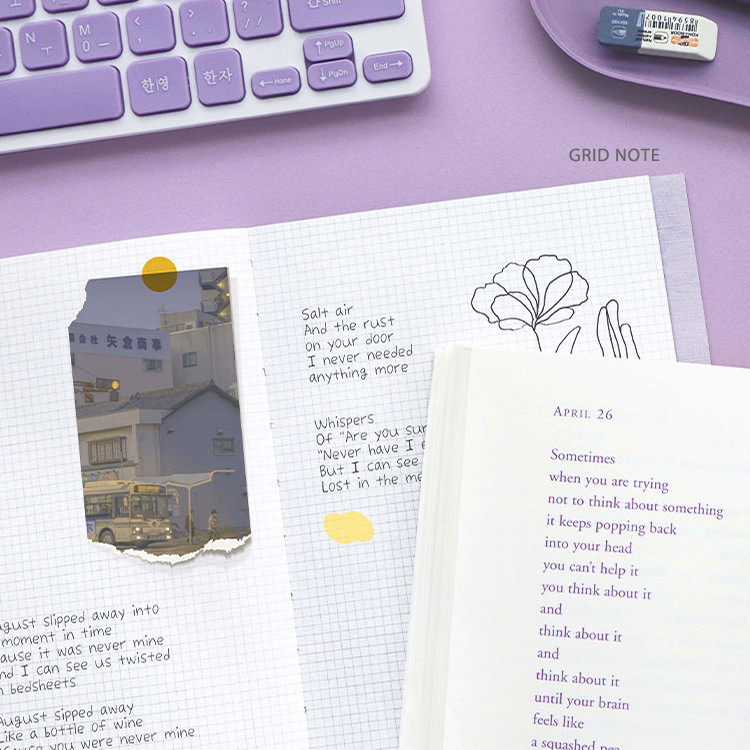 N
M
0
<
,
>
.
?
/
⇧ Shift
한/영
한자
← Home
↑ PgUp
↓ PgDn
End →
GRID NOTE
矢倉商事
Salt air
And the rust
on your door
I never needed
anything more
Whispers
Of "Are you
"Never have I
But I can see
Lost in the
slipped away into
moment in time
it was never mine
I can see us twisted
bedsheets
August sipped away
Like a bottle of wine
you were never mine
APRIL 26
Sometimes
when you are trying
not to think about something
it keeps popping back
into your head
you can't help it
you think about it
and
think about it
and
think about it
until your brain
feels like
a squashed pea